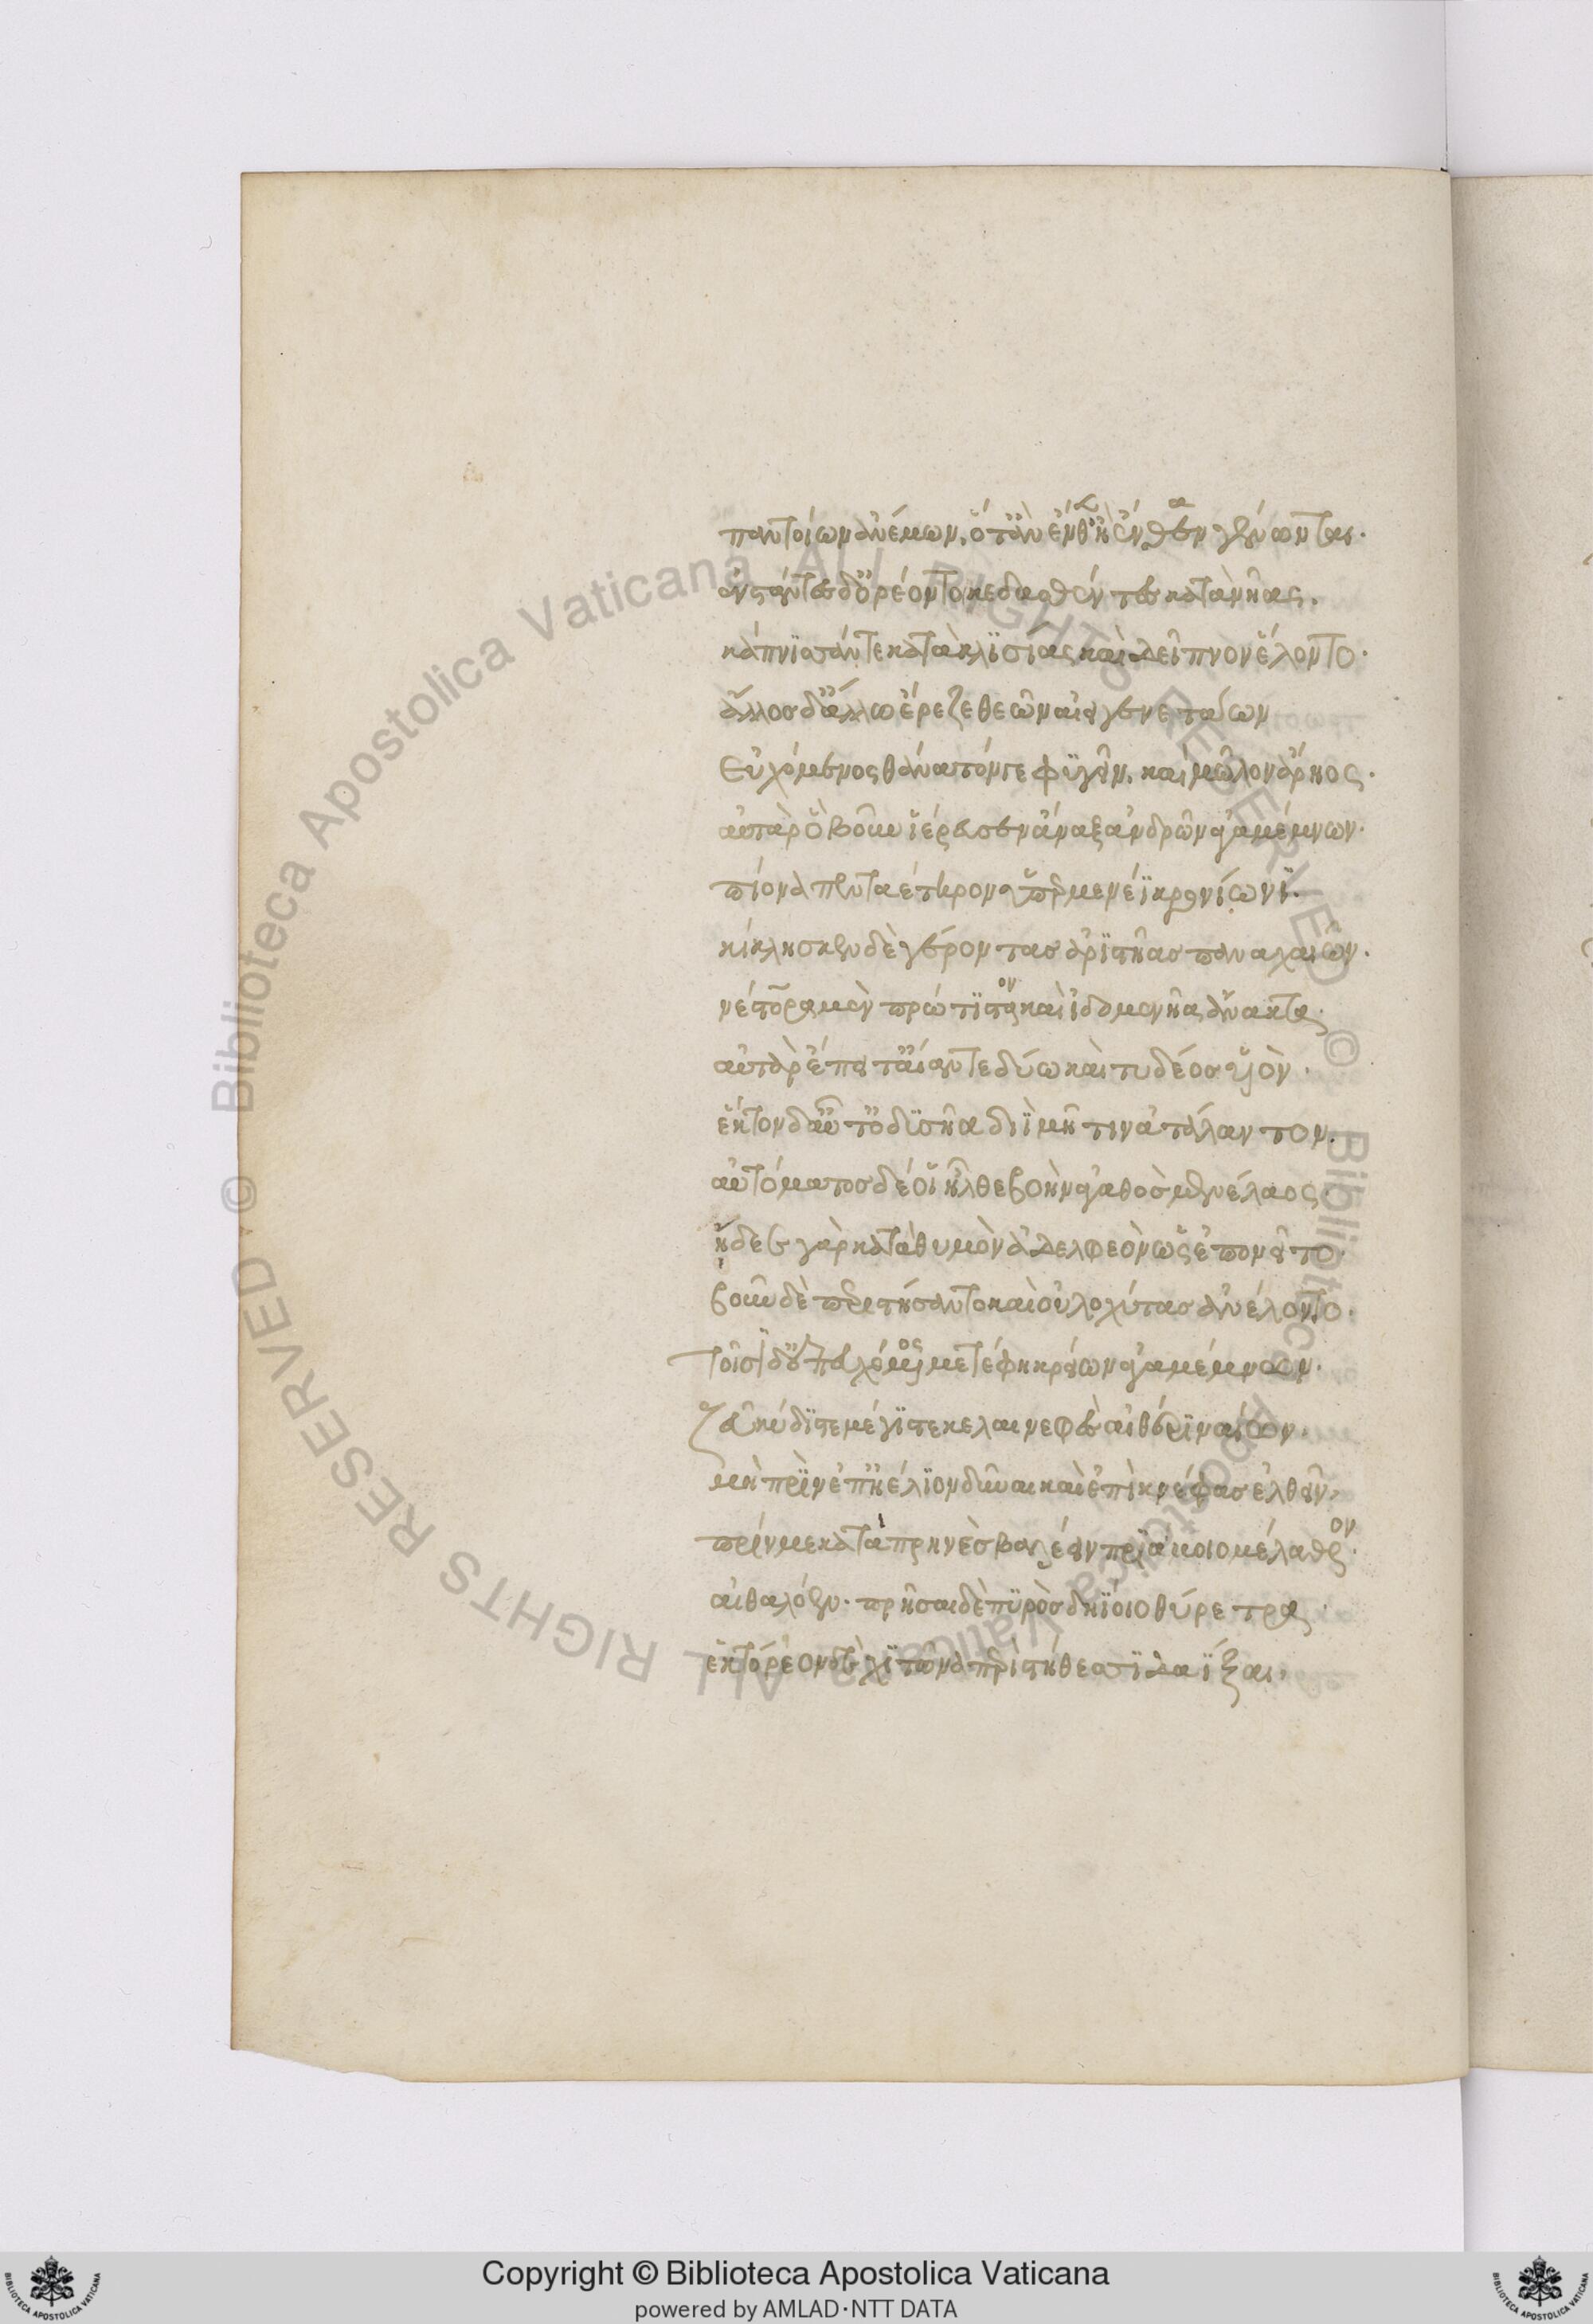 παντοίων ἀνέμων, ὅτ' ἂν ἔνθ' ἢ ἔνθα γένωνται.
ἀνστάντες δ' ὀρέοντο κεδασθέντες κατὰ νῆας.
κάπνισσάν τε κατὰ κλισίας καὶ δεῖπνον ἕλοντο.
ἄλλος δ' ἄλλω ἔρεζε θεῶν αἰειγενετάων
εὐχόμενος θάνατόν τε φυγεῖν, καὶ μῶλον ἄρηος.
αὐτὰρ ὃ βοῦν ἱέρευσεν ἄναξ ἀνδρῶν ἀγαμέμνων.
πίονα πενταέτηρον ὑπερμενέϊ κρονίωνϊ.
κίκλησκεν δὲ γέροντας ἀριστῆας παναχαιῶν.
νέστορα μὲν πρώτιστον καὶ ἰδομενῆα ἄνακτα.
αὐτὰρ ἔπειτ' αἴαντε δύω καὶ τυδέος υἱὸν.
ἕκτον δ' αὖτ' ὀδυσῆα διῒ μῆτιν ἀτάλαντον.
αὐτόματος δέ οἱ ἦλθε βοὴν ἀγαθὸς μενέλαος.
ᾔδεε γὰρ κατὰ θυμὸν ἀδελφεὸν ὡς ἐπονεῖτο.
βοῦν δὲ περιστήσαντο καὶ οὐλοχύτας ἀνέλοντο.
τοῖσϊ δ' ευχόμενος μετέφη κρείων ἀγαμέμνων.
ζεῦ κύδιστε μέγιστε κελαινεφὲς αἰθέρι ναίων.
μὴ πρὶν ἐπ' ἠέλιον δῦναι καὶ ἐπὶ κνέφας ἐλθεῖν,
πρίν με κατὰ πρηνὲς βαλέειν πριάμοιο μέλαθρον.
αἰθαλόεν. πρῆσαι δὲ πυρὸς δηΐοιο θύρετρα.
ἑκτόρεον δὲ χιτῶνα περὶ στήθεσσϊ δαΐξαι.
Copyright © Biblioteca Apostolica Vaticana
powered by AMLAD·NTT DATA